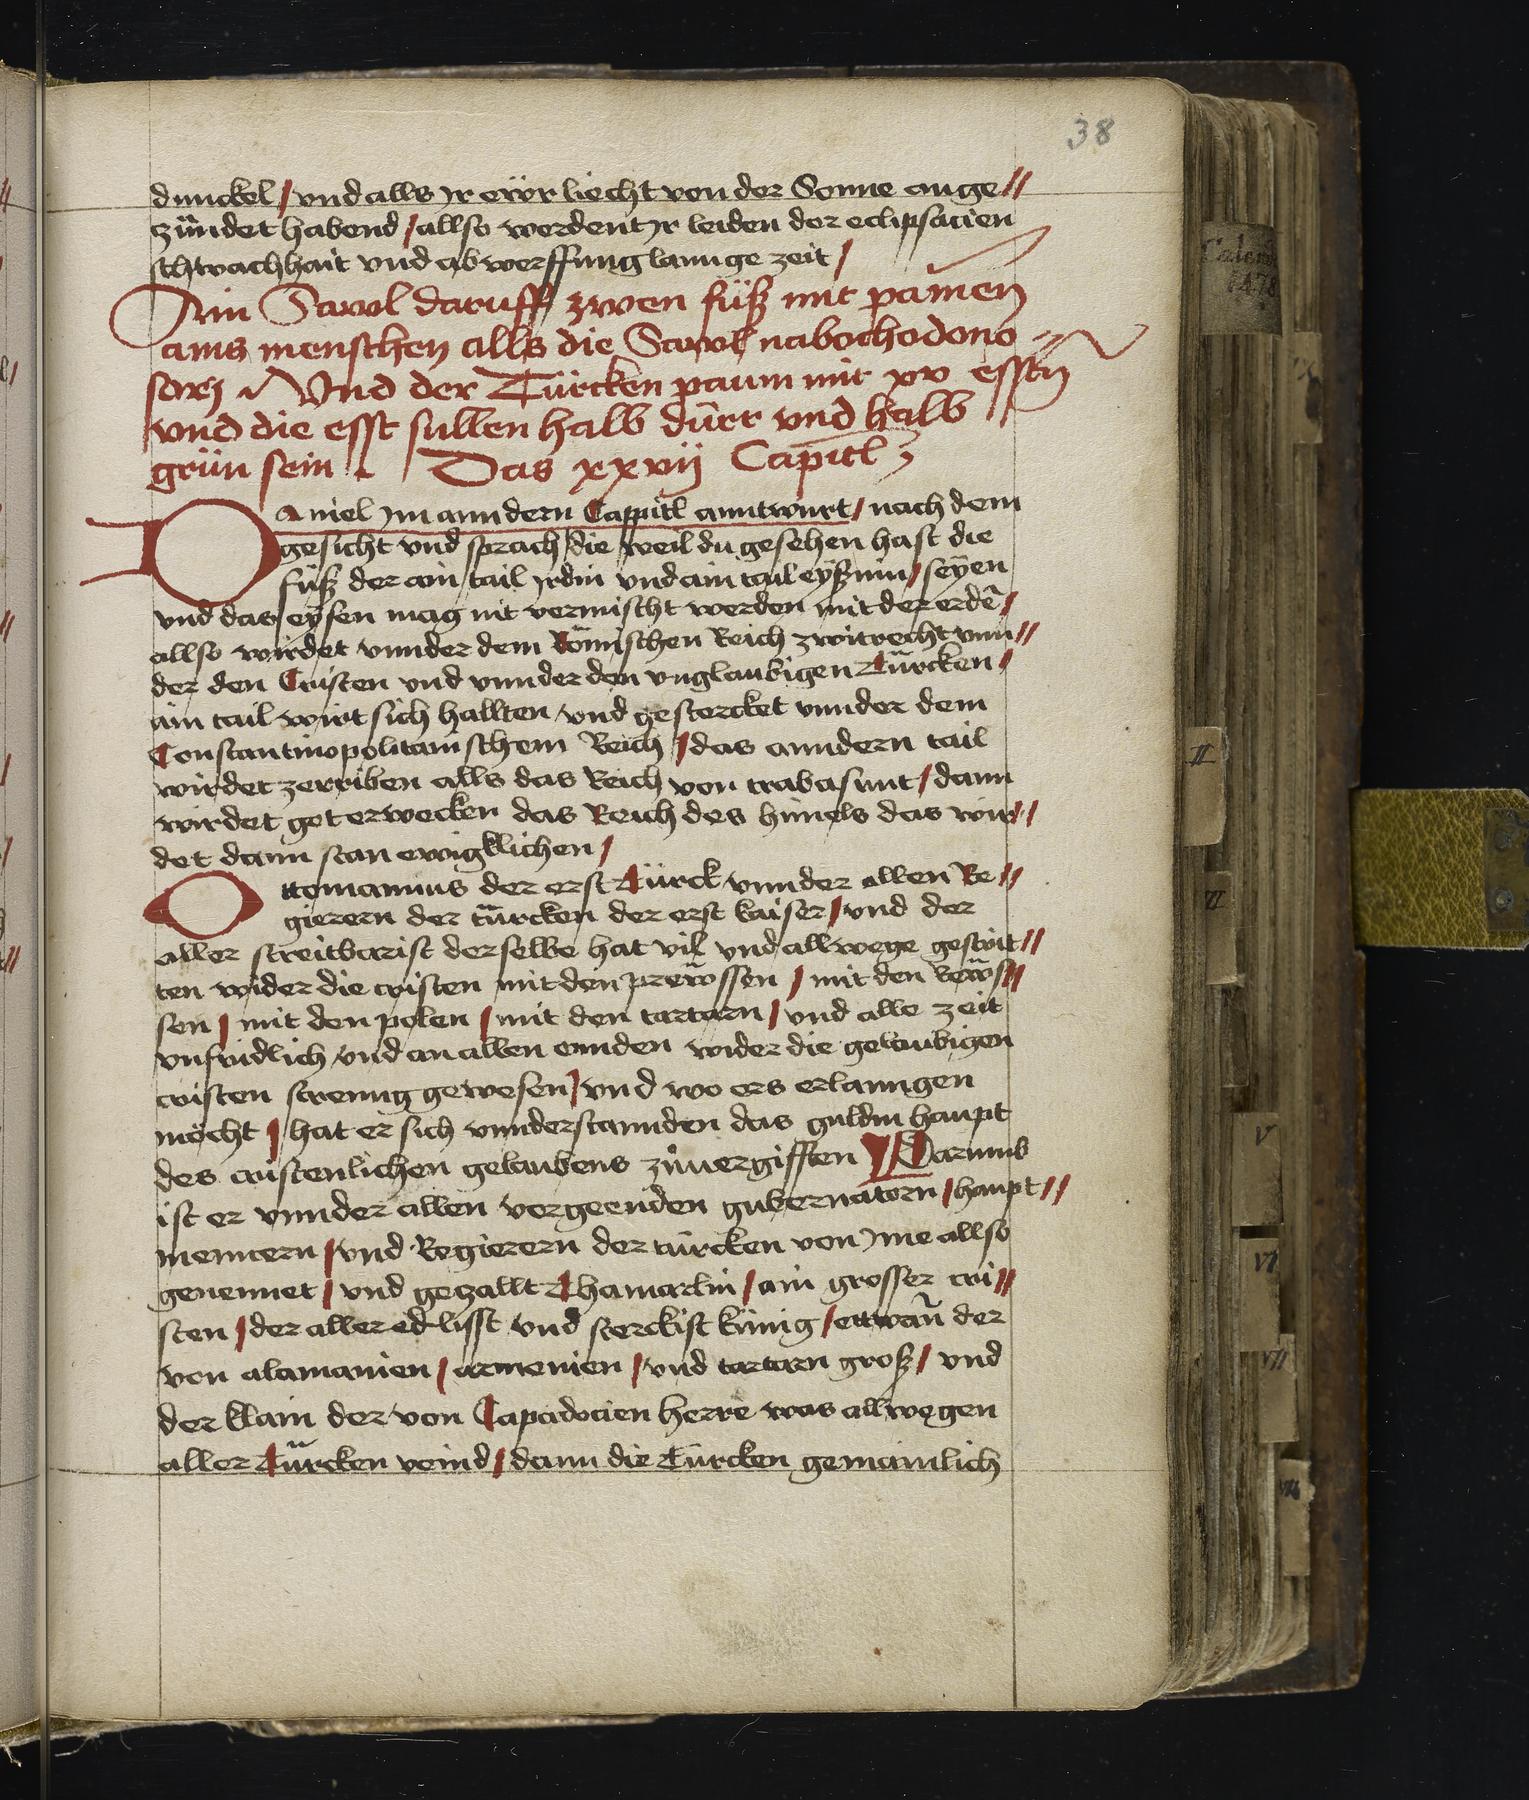 38
dunckel / vnd alls Jr ewr liecht von der Sonne ange //
zündet habend / allso werdent Jr leiden der eclipsacien
schwachhait vnd abwerffung lannge zeit /
Ain Sawl daruff zwen füß mit painen
ains menschen alls die Sawl nabochodono
sorj Vnd der Türcken paum mit xv esstn
vnd die esst sullen halb dürr vnd halb
grün sein . Das xxvij Capitl
Daniel Jm anndern Cappitl anntwurt / nach dem
gesicht vnd sprach / die weil du gesehen hast die
füß der ain tail Jrdin vnd ain tail eyßnin / seyen
vnd das eysen mag nit vermischt werden mit der erdē /
allso wirdet vnnder dem Römischen Reich zwitrecht vnn //
der den Cristen vnd vnnder den vnglaubigen Türcken /
ain tail wirt sich hallten / vnd gestercket vnnder dem
Constantinopolitanischem Reich / das anndern tail
wirdet zerriben alls das Reich von trabasunt / dann
wirdet got erwecken das Reich des himels das wir //
det dann stan ewigklichen /
Ottomannus der erst Türck vnnder allen Re //
gierern der türcken der erst kaiser / vnd der
aller streitbarist derselbe hat vil vnd allwege gestrit //
ten wider die cristen mit den prewssen / mit den Rews //
sen / mit den polen / mit den tartarn / vnd alle zeit
vnfridlich vnd an allen ennden wider die gelaubigen
cristen strenng gewesen / vnd wo ers erlanngen
möcht / hat er sich vnnderstannden das guldin haupt
des cristenlichen gelaubens zůuergifften Darumb
ist er vnnder allen vergeenden gubernatorn / haupt //
menncern / vnd Regierern der türcken von Jme allso
genennet / vnd gezallt Thamarlin / ain grosser cri //
sten / der aller edlisst vnd sterckist künig / ettwan̄ der
von alamanien / armenien / vnd tartarn groß / vnd
der klain der von Capadocien herre was allwegen
aller Türcken veind / dann die Türcken gemainlich
Calend
1478
II
V
VI
VII